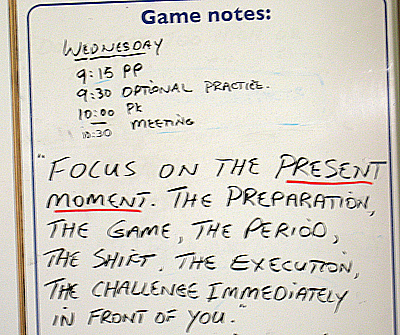 Game notes:
WEDNESDAY
9:15 PP
9:30 OPTIONAL PRACTICE.
10:00 PK
10:30 MEETING
"FOCUS ON THE PRESENT
MOMENT. THE PREPARATION,
THE GAME, THE PERIOD,
THE SHIFT, THE EXECUTION,
THE CHALLENGE IMMEDIATELY
IN FRONT OF YOU."